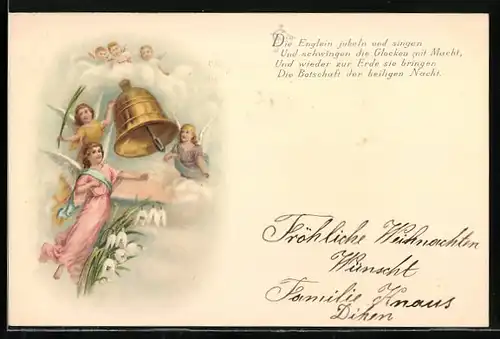 Die Englein jubeln und singen
Und schwingen die Glocken mit Macht,
Und wieder zur Erde sie bringen
Die Botschaft der heiligen Nacht.
Fröhliche Weihnachten
Wünscht
Familie Knaus
Diken